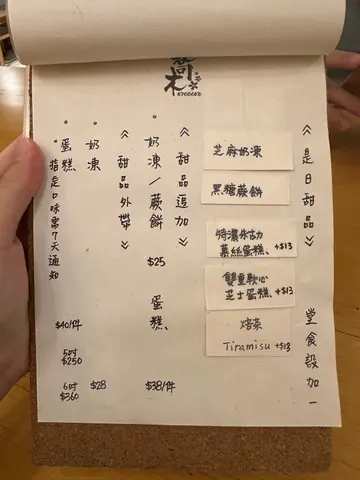 《是日甜品》 堂食設加一
芝麻奶凍
黑糖蕨餅
特濃朱古力
慕絲蛋糕、+$13
雙重軟心
芝士蛋糕、+$13
焙茶
Tiramisu +$13
《甜品追加》
。奶凍/蕨餅 $25
蛋糕、 $38/件
《甜品外帶》
。奶凍 $28
。蛋糕 $40/件
5吋 $250
6吋 $360
*指定口味需7天通知